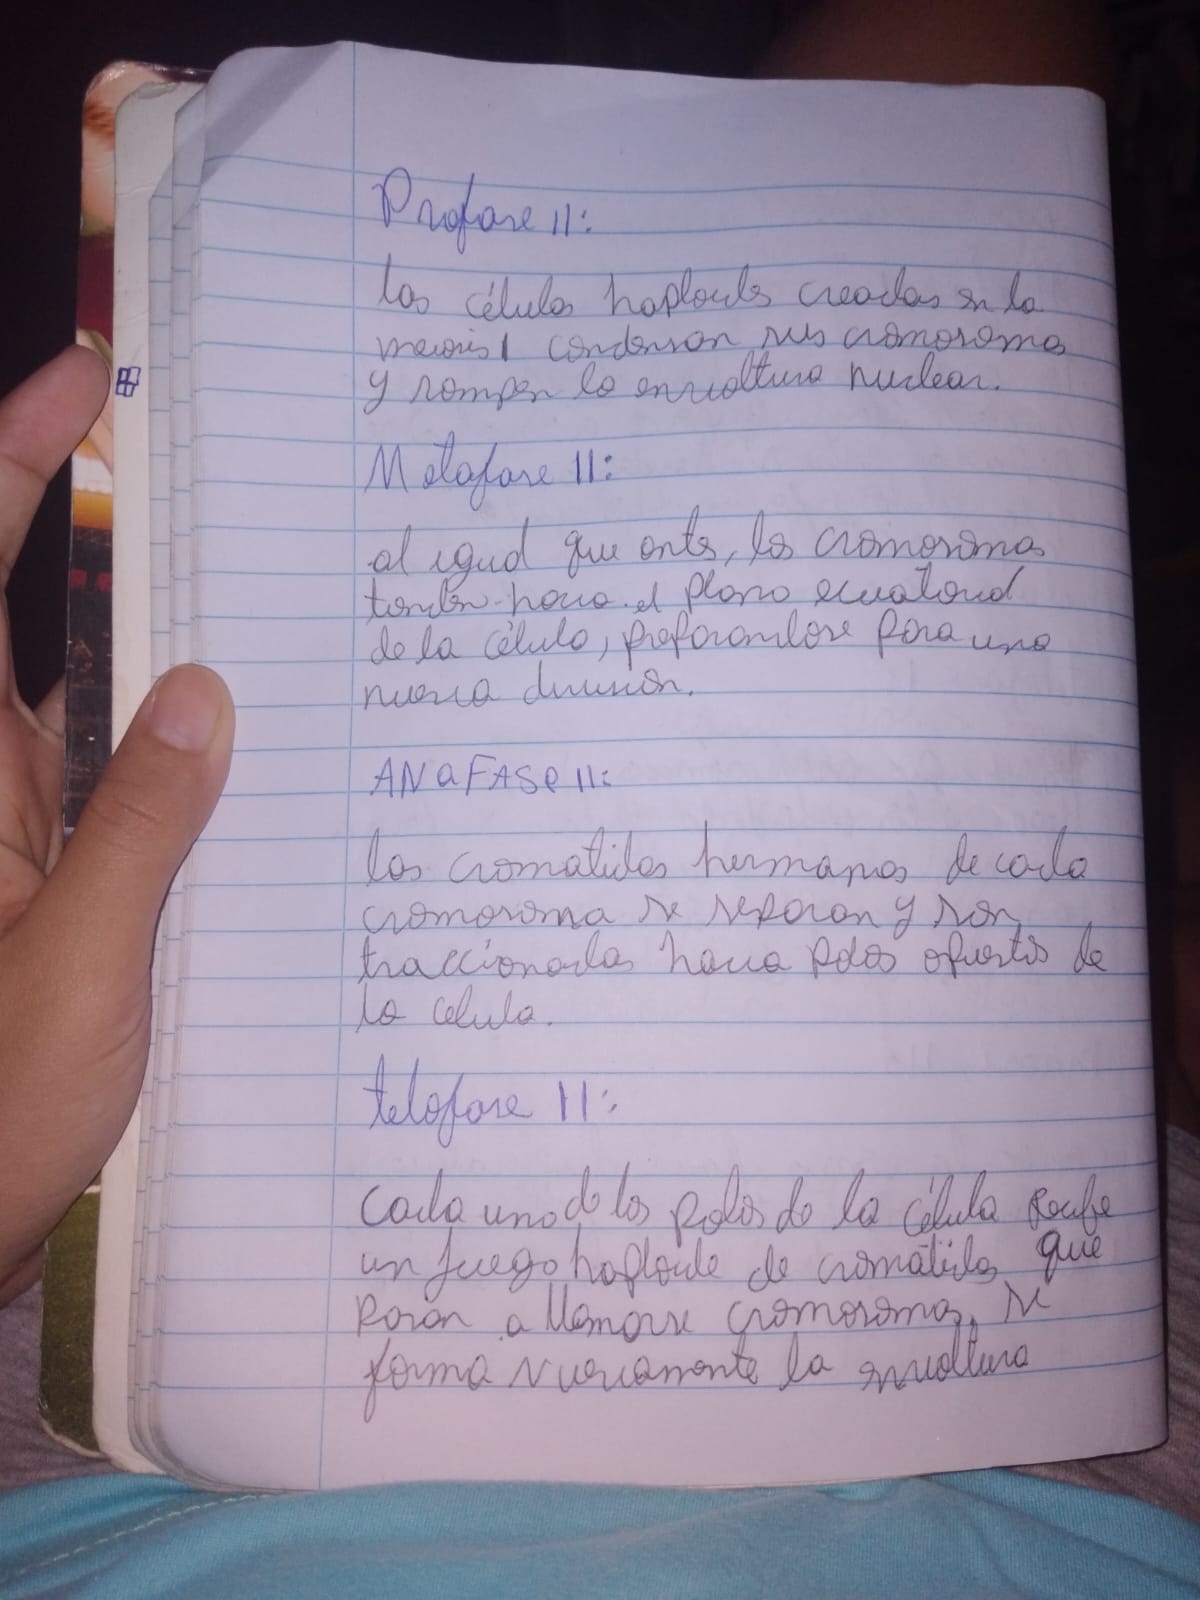 Profase II:
las células haploides creadas en la
meiosis I condensan sus cromosomas
y rompen la envoltura nuclear.
Metafase II:
al igual que antes, los cromosomas
tienden hacia el plano ecuatorial
de la célula, preparandose para una
nueva división.
ANaFASe II:
las cromatidas hermanas de cada
cromosoma se separan y son
traccionadas hacia polos opuestos de
la celula.
telofase II:
Cada uno de los polos de la célula Recibe
un juego haploide de cromátidas que
Pasan a llamarse cromosomas, se
forma Nuevamente la envoltura